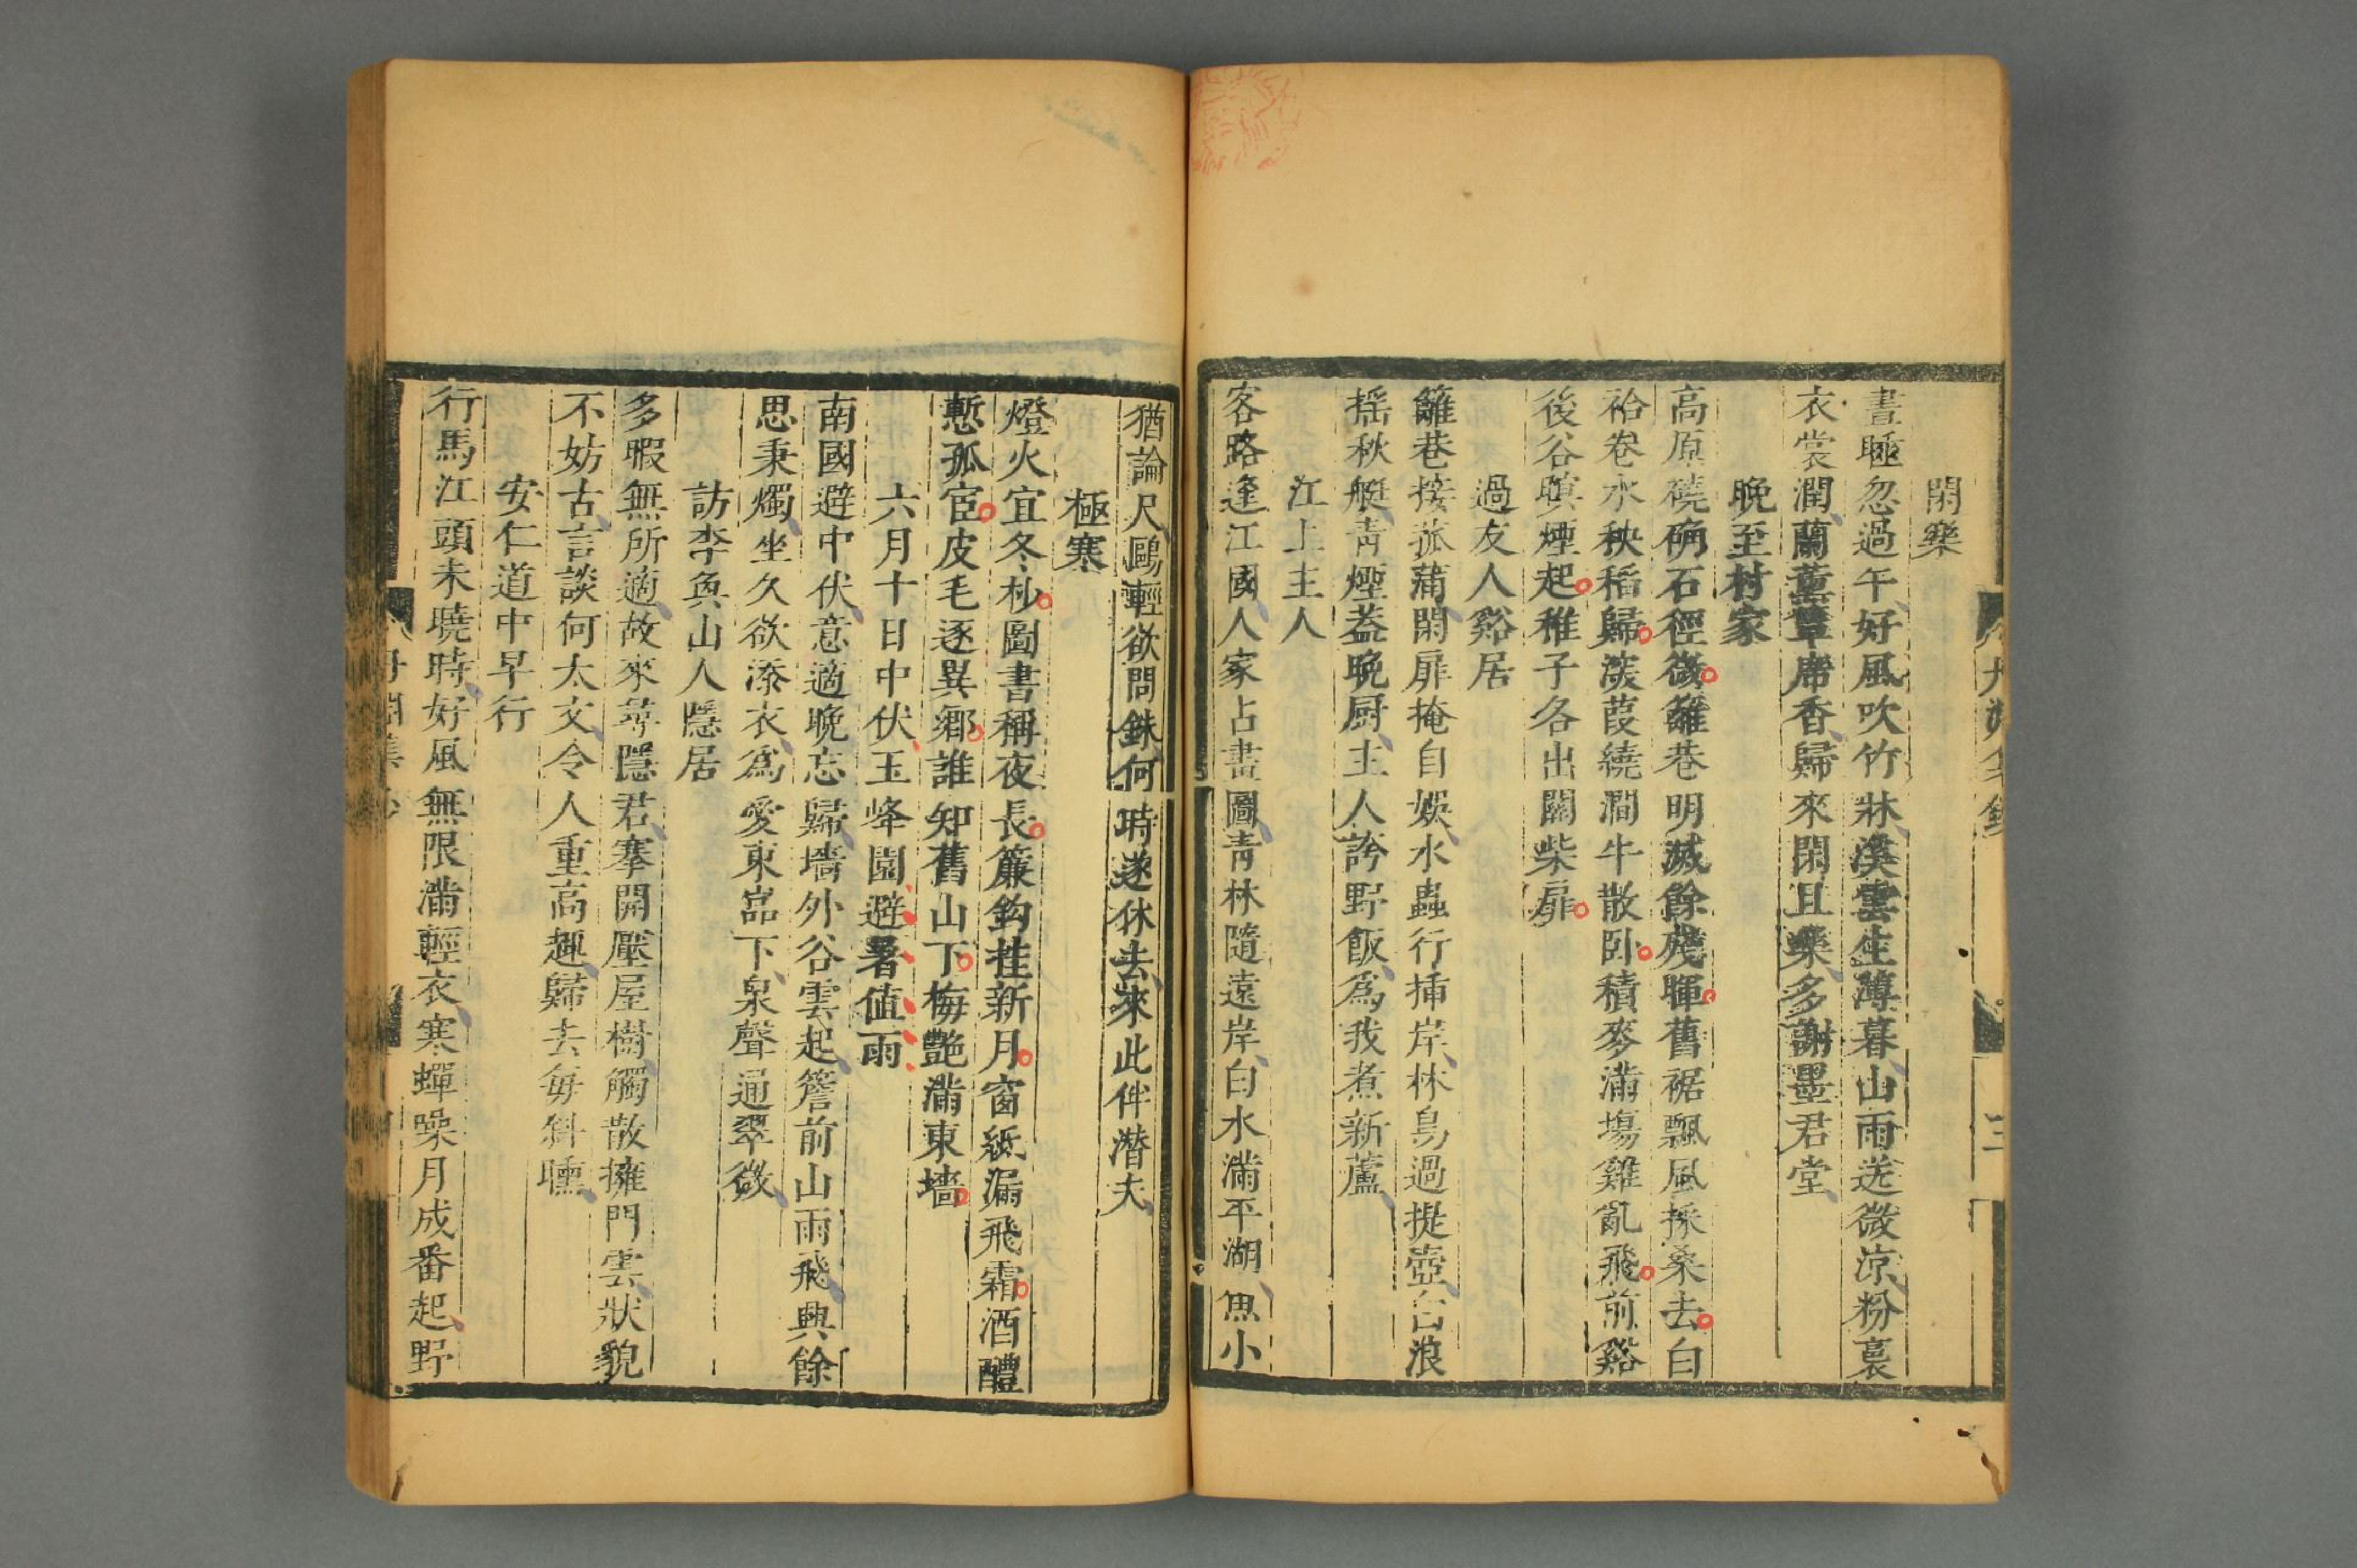 閑樂
晝睡忽過午好風吹竹牀溪雲生薄暮山雨送微涼粉裏
衣裳潤蘭薰草席香歸來閑且樂多謝墨君堂
晚至村家
高原磽确石徑微籬巷明滅餘殘暉舊裾飄風採桑去白
袷卷水秧稻歸淡葭繞澗牛散卧積麥滿塲雞亂飛前谿
後谷暝煙起稚子各出關柴扉
過友人谿居
籬巷接菰蒲閑扉掩自娛水蟲行揷岸林鳥過提壺白浪
搖秋艇青煙葢晚厨主人誇野飯爲我煮新蘆
江上主人
客路逢江國人家占畫圖青林隨遠岸白水滿平湖魚小
猶論尺鷗輕欲問銖何時遂休去來此伴潛夫
極寒
燈火宜冬杪圖書稱夜長簾鈎挂新月窗紙漏飛霜酒醴
慙孤宦皮毛逐異鄉誰知舊山下梅艷滿東墻
六月十日中伏玉峰園避暑值雨
南國避中伏意適晚忘歸墻外谷雲起簷前山雨飛興餘
思秉燭坐久欲添衣爲愛東嵓下泉聲通翠微
訪李奐山人隱居
多暇無所適故來尋隱君搴開壓屋樹觸散擁門雲狀貌
不妨古言談何太文令人重高趣歸去每斜曛
安仁道中早行
行馬江頭未曉時好風無限滿輕衣寒蟬噪月成番起野